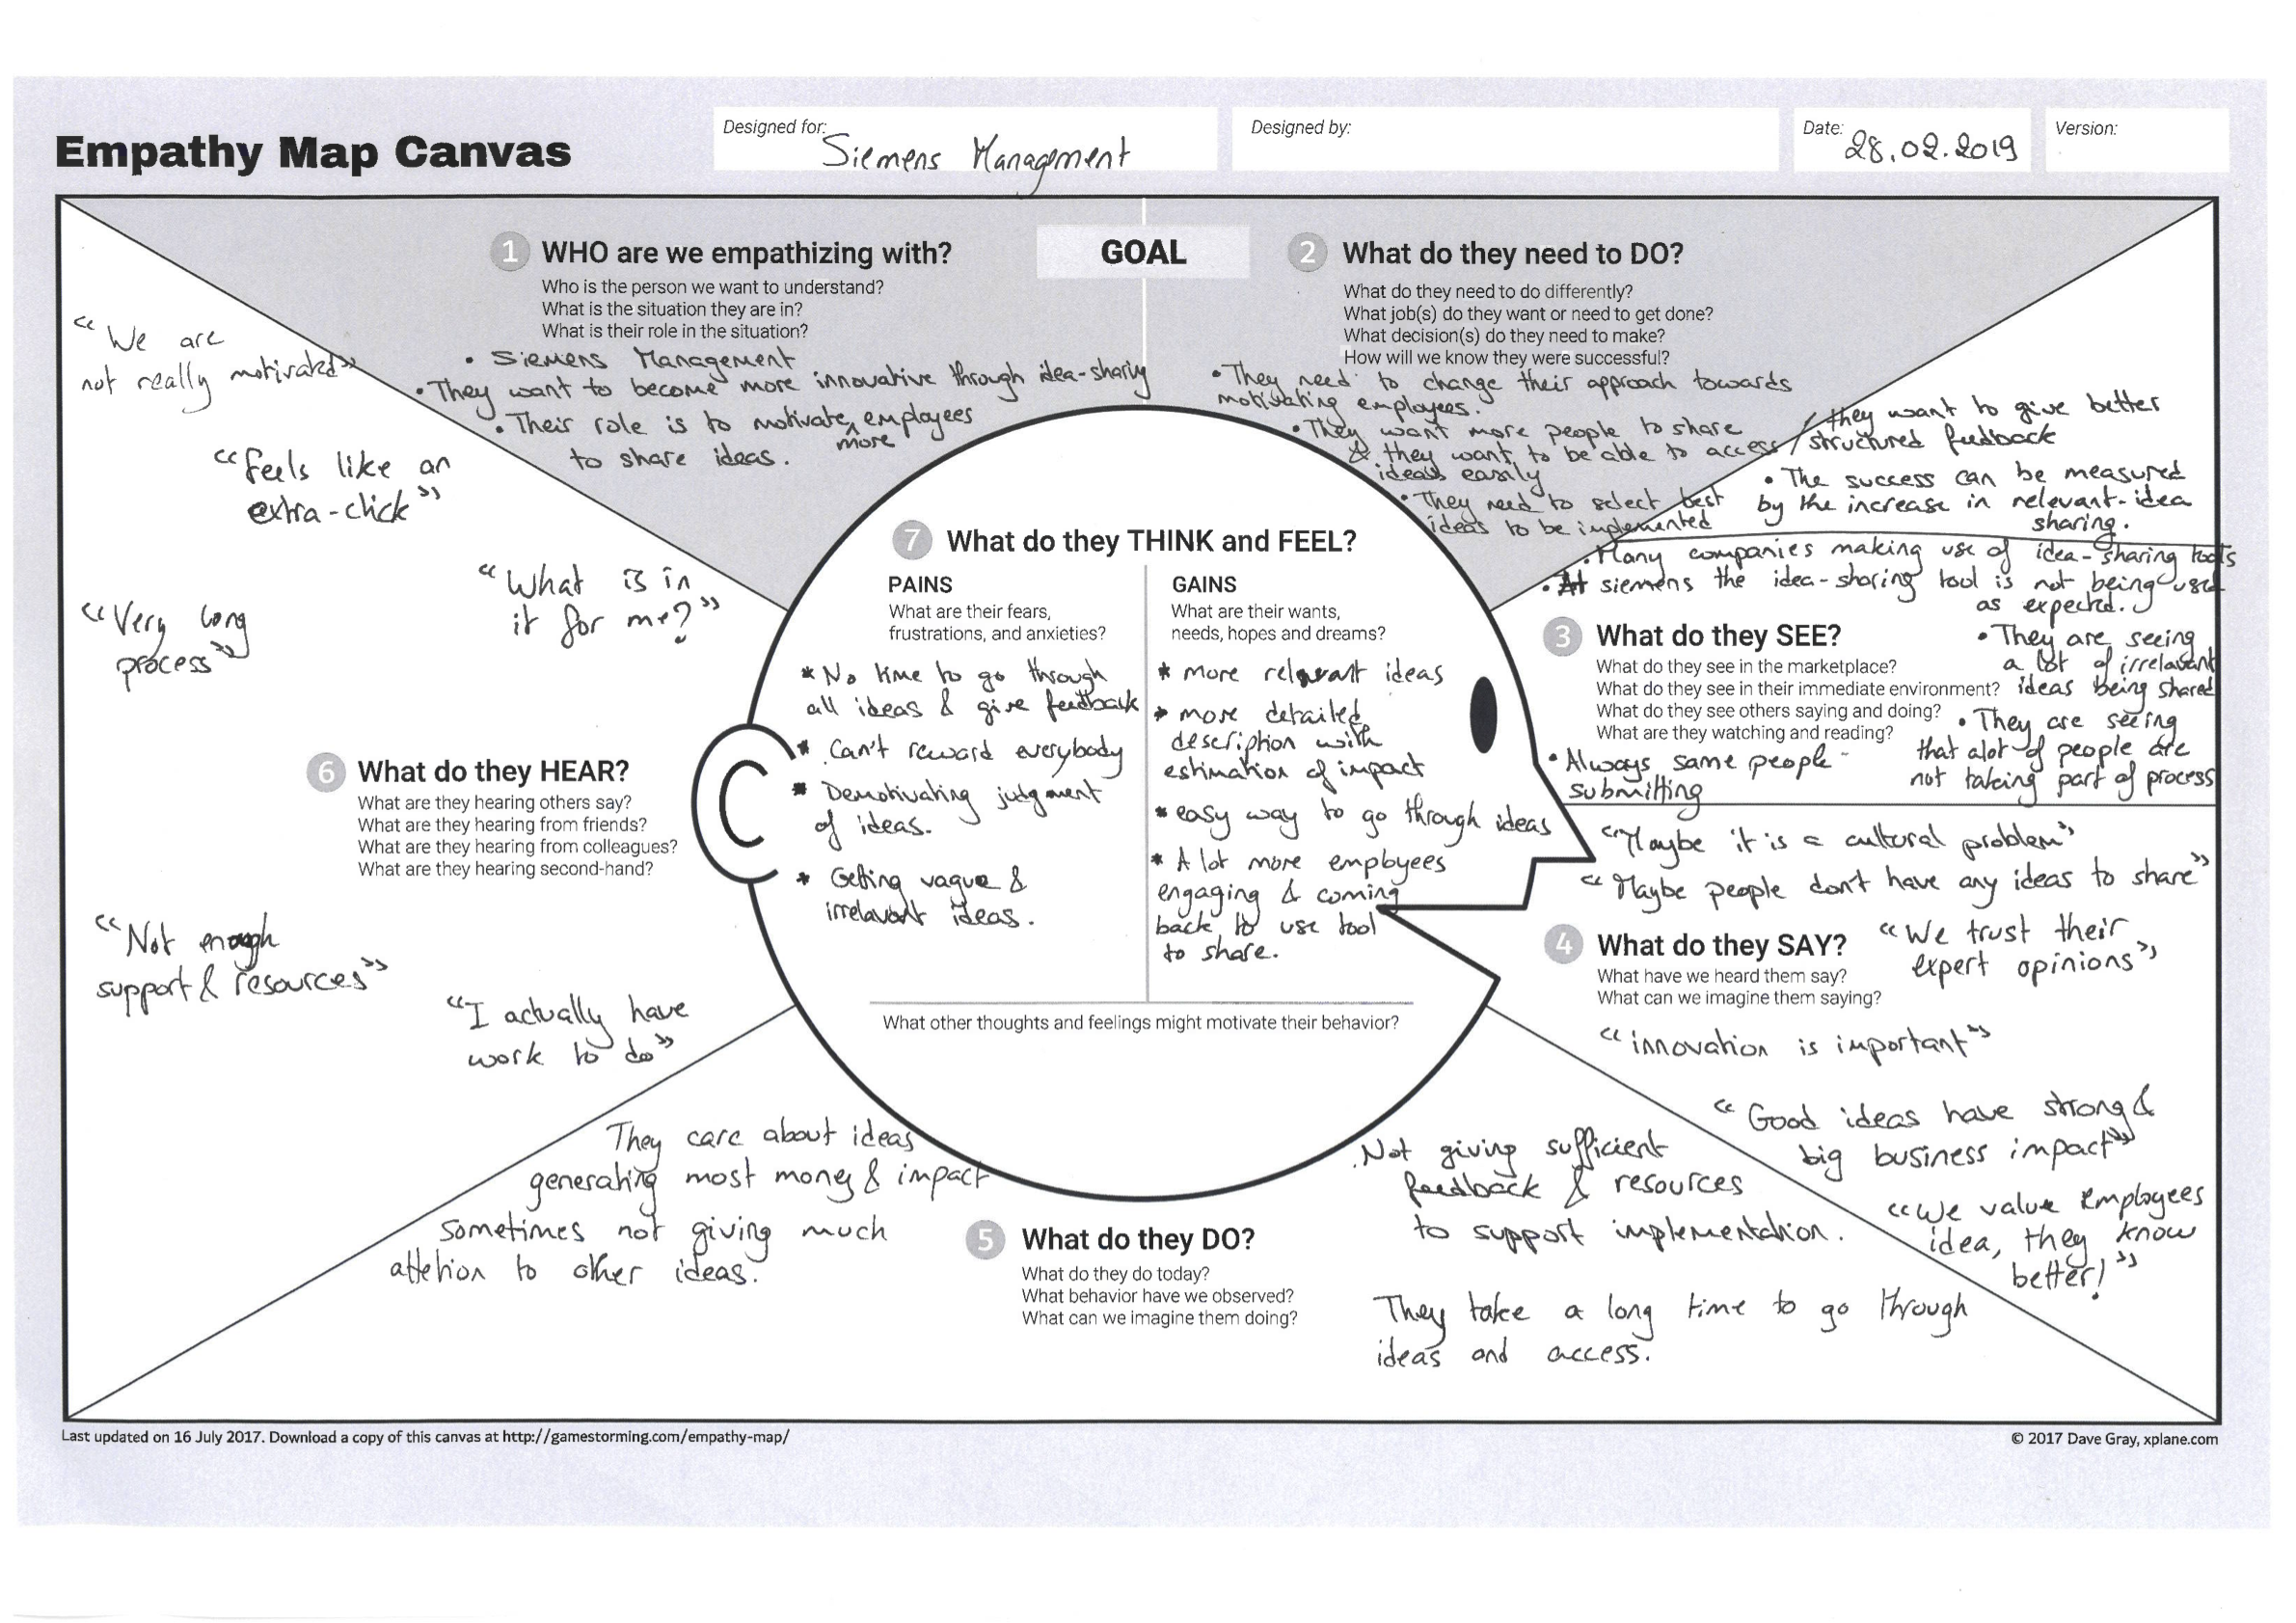 Empathy Map Canvas
Designed for:
Siemens Management
Designed by:
Date:
28.02.2019
Version:
GOAL
1 WHO are we empathizing with?
Who is the person we want to understand?
What is the situation they are in?
What is their role in the situation?
• Siemens Management
• They want to become more innovative through idea-sharing
• Their role is to motivate employees
more
to share ideas.
2 What do they need to DO?
What do they need to do differently?
What job(s) do they want or need to get done?
What decision(s) do they need to make?
How will we know they were successful?
• They need to change their approach towards
motivating employees.
• They want more people to share
& they want to be able to access
ideas easily
/ they want to give better
/ structured feedback
• They need to select best
ideas to be implemented
• The success can be measured
by the increase in relevant-idea
sharing.
• Many companies making use of idea-sharing tools
• At siemens the idea-sharing tool is not being used
as expected.
3 What do they SEE?
What do they see in the marketplace?
What do they see in their immediate environment?
What do they see others saying and doing?
What are they watching and reading?
• They are seeing
a lot of irrelavant
ideas being shared
• They are seeing
that alot of people are
not taking part of process
• Always same people -
submitting
"Maybe it is a cultural problem"
"Maybe people don't have any ideas to share"
4 What do they SAY?
What have we heard them say?
What can we imagine them saying?
"We trust their
expert opinions"
"innovation is important"
"Good ideas have strong &
big business impact"
"We value employees
idea, they know
better!"
5 What do they DO?
What do they do today?
What behavior have we observed?
What can we imagine them doing?
They care about ideas
generating most money & impact
sometimes not giving much
attetion to other ideas.
. Not giving sufficient
feedback & resources
to support implementation.
They take a long time to go through
ideas and access.
6 What do they HEAR?
What are they hearing others say?
What are they hearing from friends?
What are they hearing from colleagues?
What are they hearing second-hand?
"We are
not really motivated"
"feels like an
extra-click"
"What is in
it for me?"
"Very long
process"
"Not enough
support & resources"
"I actually have
work to do"
7 What do they THINK and FEEL?
PAINS
What are their fears,
frustrations, and anxieties?
* No time to go through
all ideas & give feedback
* Can't reward everybody
* Demotivating judgment
of ideas.
* Getting vague &
irrelavant ideas.
GAINS
What are their wants,
needs, hopes and dreams?
* more relevant ideas
* more detailed
description with
estimation of impact
* easy way to go through ideas
* A lot more employees
engaging & coming
back to use tool
to share.
What other thoughts and feelings might motivate their behavior?
Last updated on 16 July 2017. Download a copy of this canvas at http://gamestorming.com/empathy-map/
© 2017 Dave Gray, xplane.com